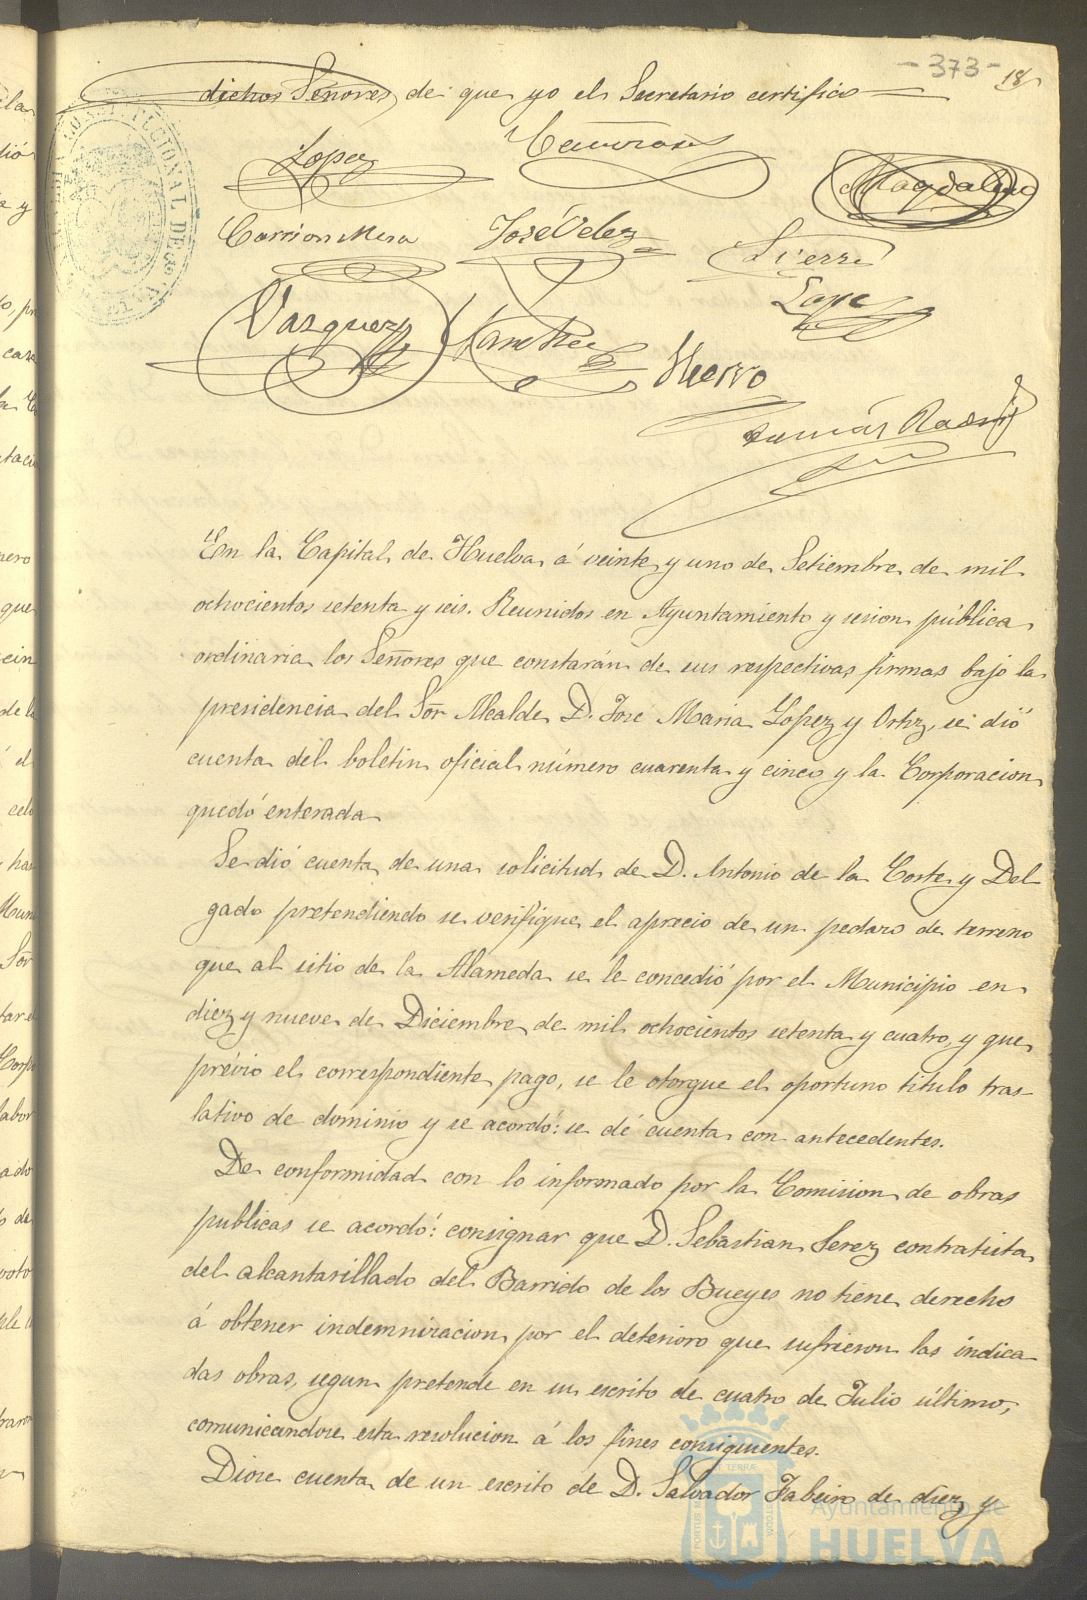 - 373 - 18
dichos Señores, de que yo el Secretario certifico
Lopez
Magdaleno
Carrion Mesa José Velez
Sierra
Lopez
Vazquez Sanchez
Huerro
Tomás
En la Capital de Huelva á veinte y uno de Setiembre de mil
ochocientos setenta y seis. Reunidos en Ayuntamiento y sesion pública
ordinaria los Señores que constarán de sus respectivas firmas bajo la
presidencia del Sõr Alcalde D. José Maria Lopez y Ortiz, se dió
cuenta del boletin oficial número cuarenta y cinco y la Corporacion
quedó enterada
Se dió cuenta de una solicitud de D. Antonio de la Corte y Del
gado pretendiendo se verifique el aprecio de un pedazo de terreno
que al sitio de la Alameda se le concedió por el Municipio en
diez y nueve de Diciembre de mil ochocientos setenta y cuatro, y que
prévio el correspondiente pago, se le otorgue el oportuno titulo tras-
lativo de dominio y se acordó: se dé cuenta con antecedentes.
De conformidad con lo informado por la Comision de obras
publicas se acordó: consignar que D. Sebastian Serez contratista
del alcantarillado del Barrido de los Bueyes no tiene derecho
á obtener indemnizacion por el deterioro que sufrieron las indica
das obras, segun pretende en su escrito de cuatro de Julio último,
comunicandose esta resolucion á los fines consiguientes.
Diose cuenta de un escrito de D. Salvador Fabeiro de diez y
Ayuntamiento de
HUELVA